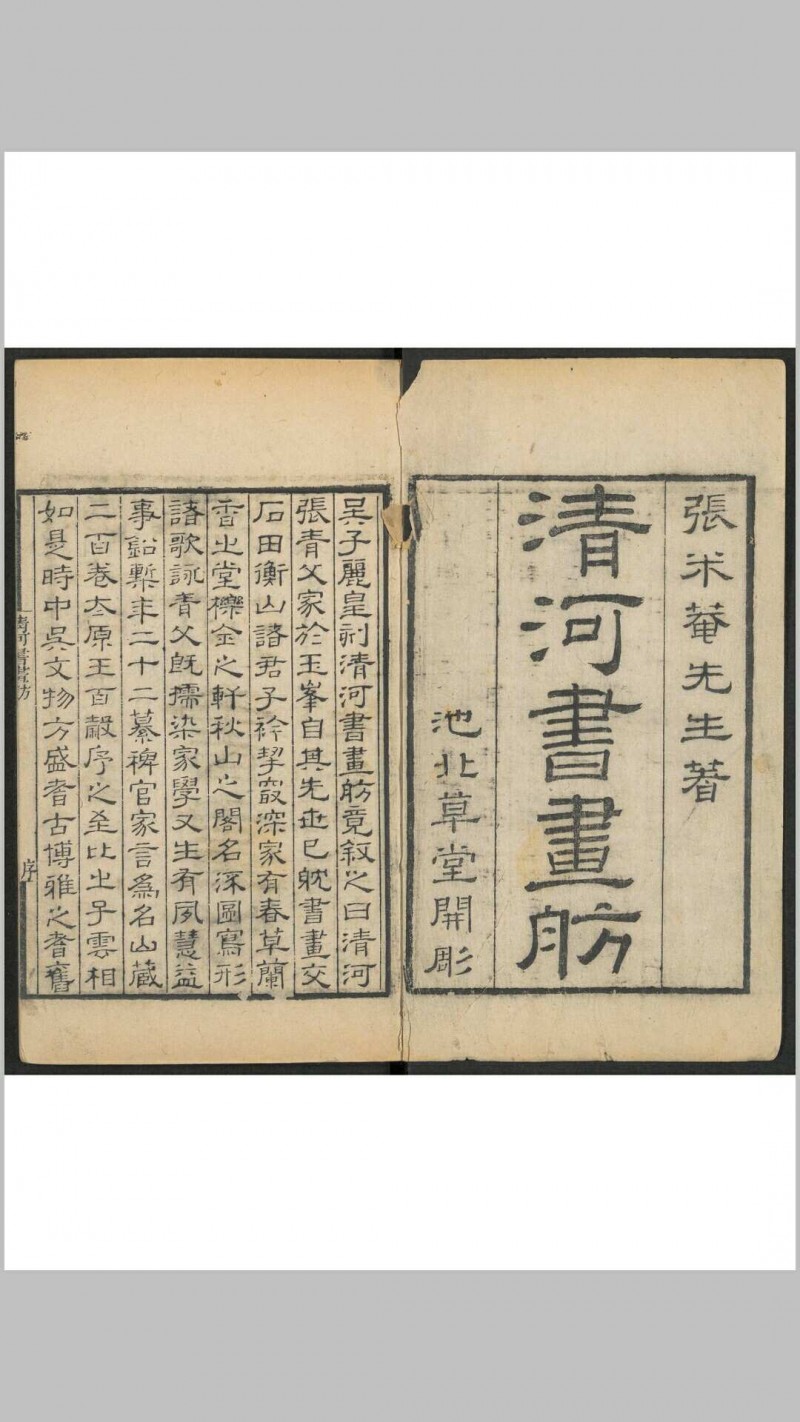 張米菴先生著
清河書畫舫
池北草堂開彫
吳子麗皇刻清河書畫舫竟敘之曰清河
張青父家於玉峯自其先世已躭書畫交
石田衡山諸君子衿契冣深家有春草蘭
香之堂櫟金之軒秋山之閣名流圖寫形
諸歌詠青父既擩染家學又生有夙慧益
事鉛槧年二十二纂稗官家言為名山藏
二百卷太原王百穀序之至比之子雲相
如是時中吳文物方盛耆古博雅之耆舊
清河書畫舫
序